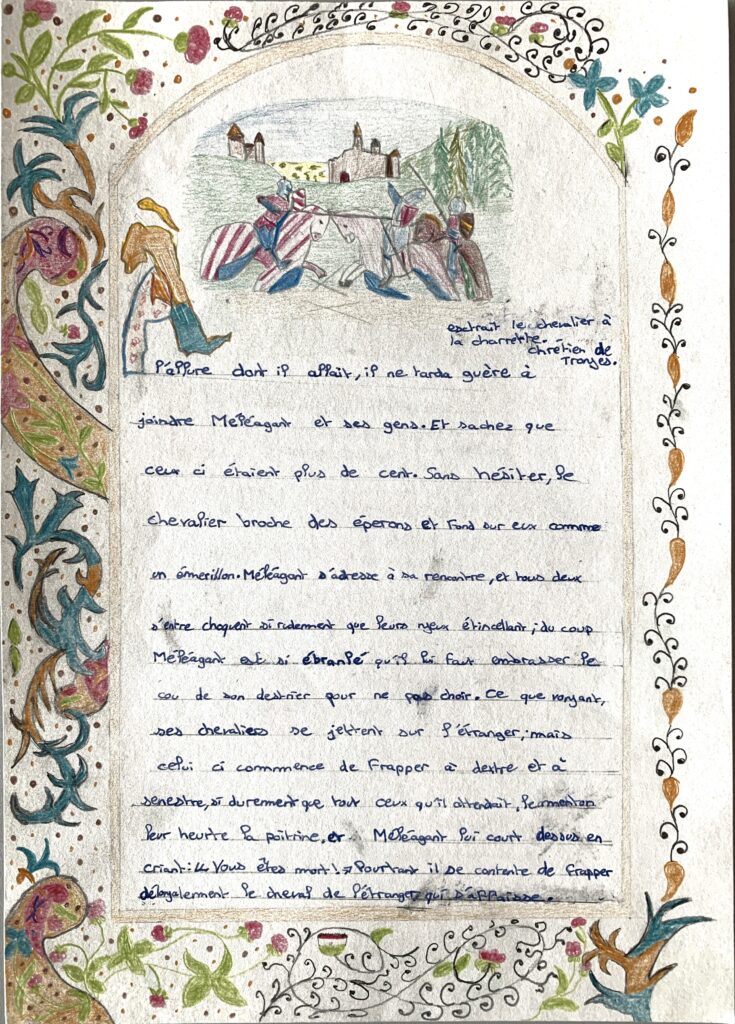 extrait le chevalier à
la charrette.
Chrétien de
Troyes.
A l'allure dont il allait, il ne tarda guère à
joindre Méléagant et ses gens. Et sachez que
ceux ci étaient plus de cent. Sans hésiter, le
chevalier broche des éperons et fond sur eux comme
un émerillon. Méléagant s'adresse à sa rencontre, et tous deux
s'entre choquent si rudement que leurs yeux étincellant ; du coup
Méléagant est si ébranlé qu'il lui faut embrasser le
cou de son destrier pour ne pas choir. Ce que voyant,
ses chevaliers se jettent sur l'étranger ; mais
celui ci commmence de frapper à dextre et à
senestre, si durement que tout ceux qu'il attendait, le menton
leur heurte la poitrine, et Méléagant lui court dessus en
criant : « Vous êtes mort ! » Pourtant il se contente de frapper
déloyalement le cheval de l'étranger qui s'affaisse.